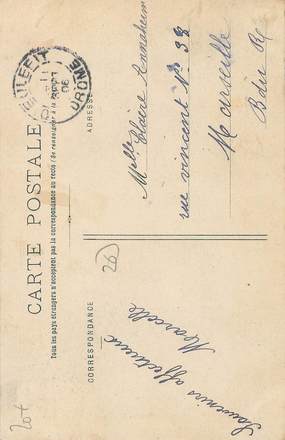 CARTE POSTALE
Tous les pays étrangers n'acceptent pas la correspondance au recto (Se renseigner à la
CORRESPONDANCE
ADRESSE
DIEULEFIT
DROME
06
Souvenirs affectueux
Marcelle
Melle Claire
rue vincent N° 38
Marseille
B du R
26
20f